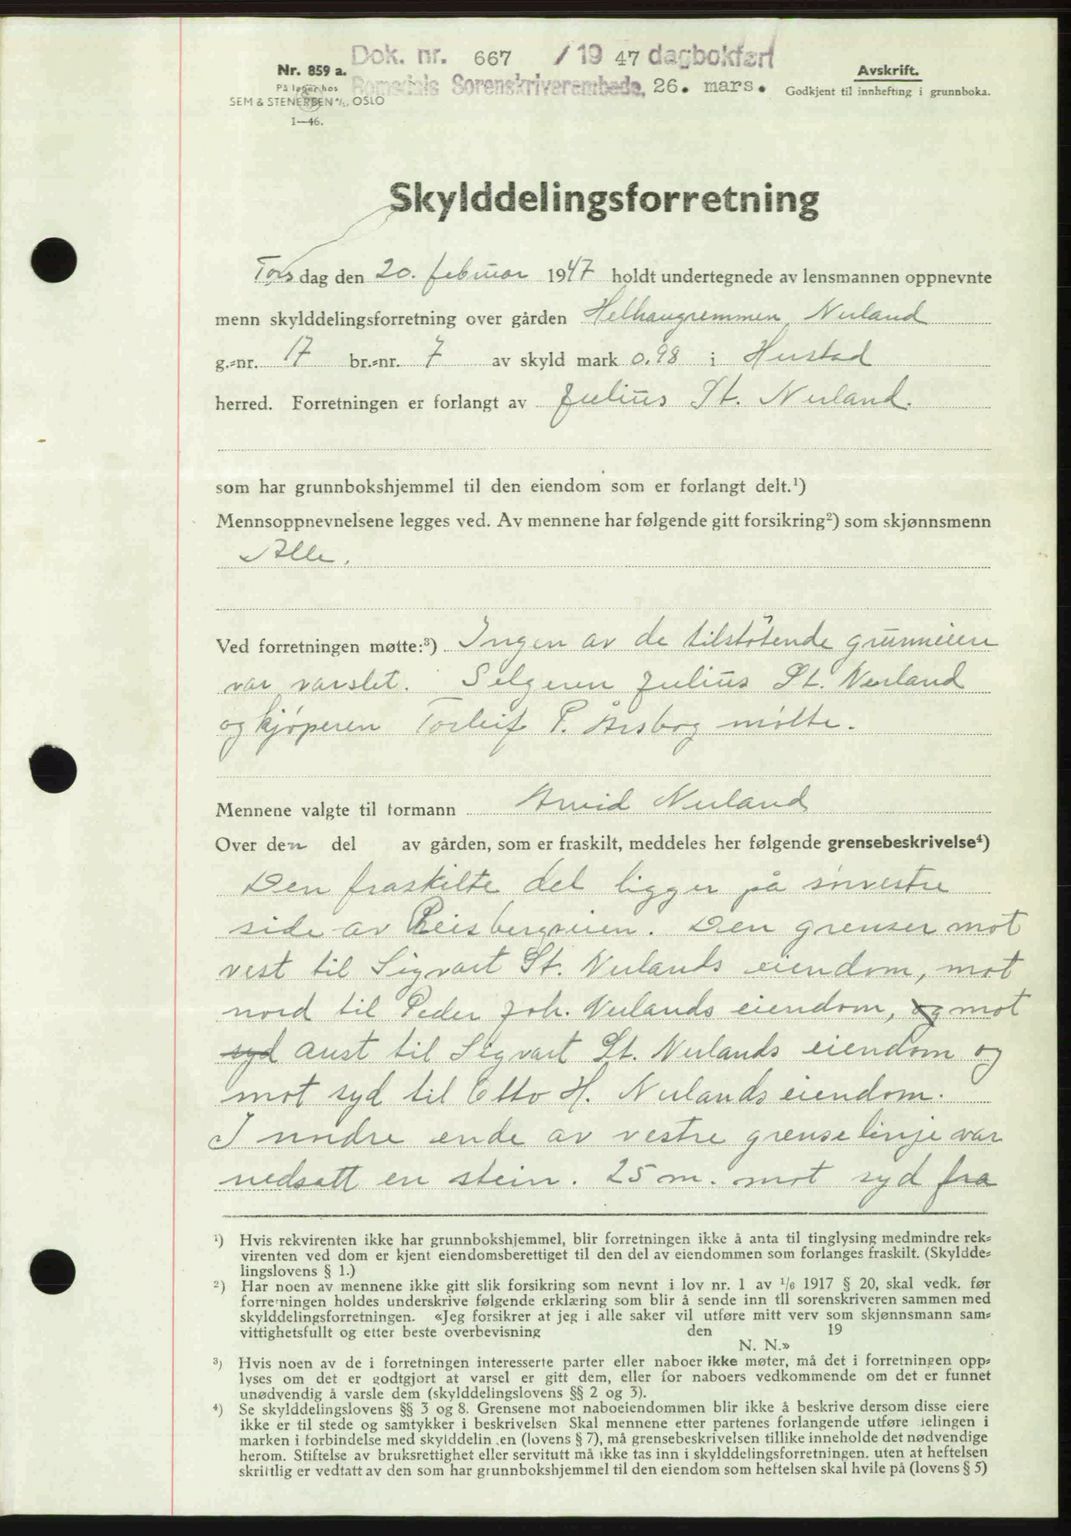 Dok. nr. 667 / 19 47 dagbokført
Nr. 859 a.
Romsdals Sorenskriverembede, 26. mars.
Avskrift.
På lager hos
SEM & STENERSEN A/S, OSLO
Godkjent til innhefting i grunnboka.
1—46.
Skylddelingsforretning
Torsdag den 20. februar 1947 holdt undertegnede av lensmannen oppnevnte
menn skylddelingsforretning over gården Helhaugremmen, Nerland
g.-nr. 17 br.-nr. 7 av skyld mark 0.98 i Hustad
herred. Forretningen er forlangt av Julius St. Nerland.
som har grunnbokshjemmel til den eiendom som er forlangt delt.¹)
Mennsoppnevnelsene legges ved. Av mennene har følgende gitt forsikring²) som skjønnsmenn
Alle.
Ved forretningen møtte:³) Ingen av de tilstøtende grunneiere
var varslet. Selgeren Julius St. Nerland
og kjøperen Torleif P. Årsbog møtte.
Mennene valgte til formann Arvid Nerland
Over den del av gården, som er fraskilt, meddeles her følgende grensebeskrivelse⁴)
Den fraskilte del ligger på sørvestre
side av Reisbergveien. Den grenser mot
vest til Sigvart St. Nerlands eiendom, mot
nord til Peder Joh. Nerlands eiendom, og mot
syd aust til Sigvart St. Nerlands eiendom og
mot syd til Otto H. Nerlands eiendom.
I nordre ende av vestre grenselinje var
nedsatt en stein. 25 m. mot syd fra
¹) Hvis rekvirenten ikke har grunnbokshjemmel, blir forretningen ikke å anta til tinglysing medmindre rek-
virenten ved dom er kjent eiendomsberettiget til den del av eiendommen som forlanges fraskilt. (Skyldde-
lingslovens § 1.)
²) Har noen av mennene ikke gitt slik forsikring som nevnt i lov nr. 1 av 1/6 1917 § 20, skal vedk. før
forretningen holdes underskrive følgende erklæring som blir å sende inn til sorenskriveren sammen med
skylddelingsforretningen. «Jeg forsikrer at jeg i alle saker vil utføre mitt verv som skjønnsmann sam-
vittighetsfullt og etter beste overbevisning den 19
N. N.»
³) Hvis noen av de i forretningen interesserte parter eller naboer ikke møter, må det i forretningen opp-
lyses om det er godtgjort at varsel er gitt dem, eller for naboers vedkommende om det er funnet
unødvendig å varsle dem (skylddelingslovens §§ 2 og 3).
⁴) Se skylddelingslovens §§ 3 og 8. Grensene mot naboeiendommen blir ikke å beskrive dersom disse eiere
ikke er til stede og samtykker i beskrivelsen Skal mennene etter partenes forlangende utføre delingen i
marken i forbindelse med skylddelingen (lovens § 7), må grensebeskrivelsen tillike inneholde det nødvendige
herom. Stiftelse av bruksrettighet eller servitutt må ikke tas inn i skylddelingsforretningen. uten at heftelsen
skriftlig er vedtatt av den som har grunnbokshjemmel til den eiendom som heftelsen skal hvile på (lovens § 5)